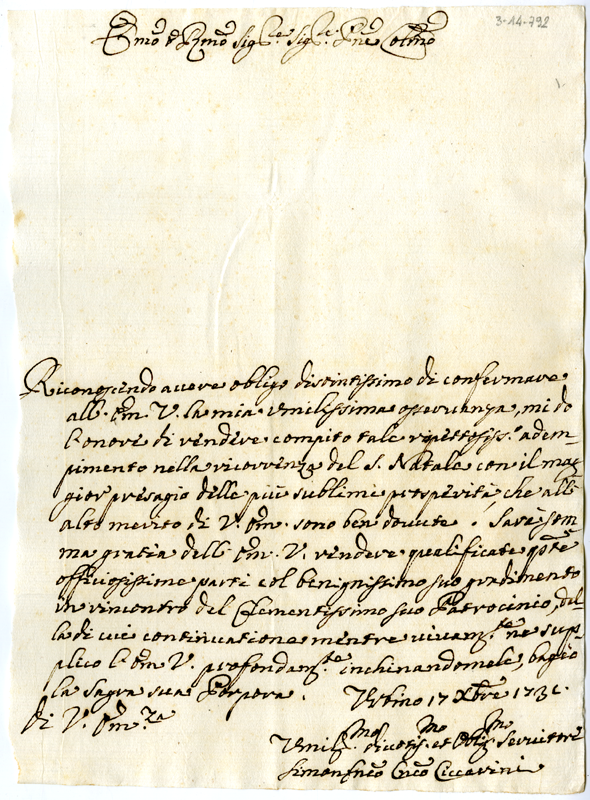 3-14-792
Emo e Rmo Sigre Sigre Pne Colmo
Riconoscendo avere obligo distintissimo di confermare
all' Em. V. la mia umilissima osservanza, mi do
l'onore di rendere compito tale rispettosiss.o adem-
pimento nella ricorrenza del S. Natale con il mag
gior presagio delle più sublimi prosperità, che all'
alto merito di V. Em. sono ben dovute. Sarà som
ma gratia dell' Em. V. rendere qualificate qste
officiosissime parti col benignissimo suo gradimento
in rincontro del Clementissimo suo Patrocinio, del
la di cui continuatione mentre vivam.te ne sup-
plico l'Em. V. profondam.te inchinandomele, bagio
la Sagra sua Porpora. Urbino 17 Xbre 173
di V. Em.za
Umil.mo divotis.mo et Obl.mo Servitore
Simon Ciccarini